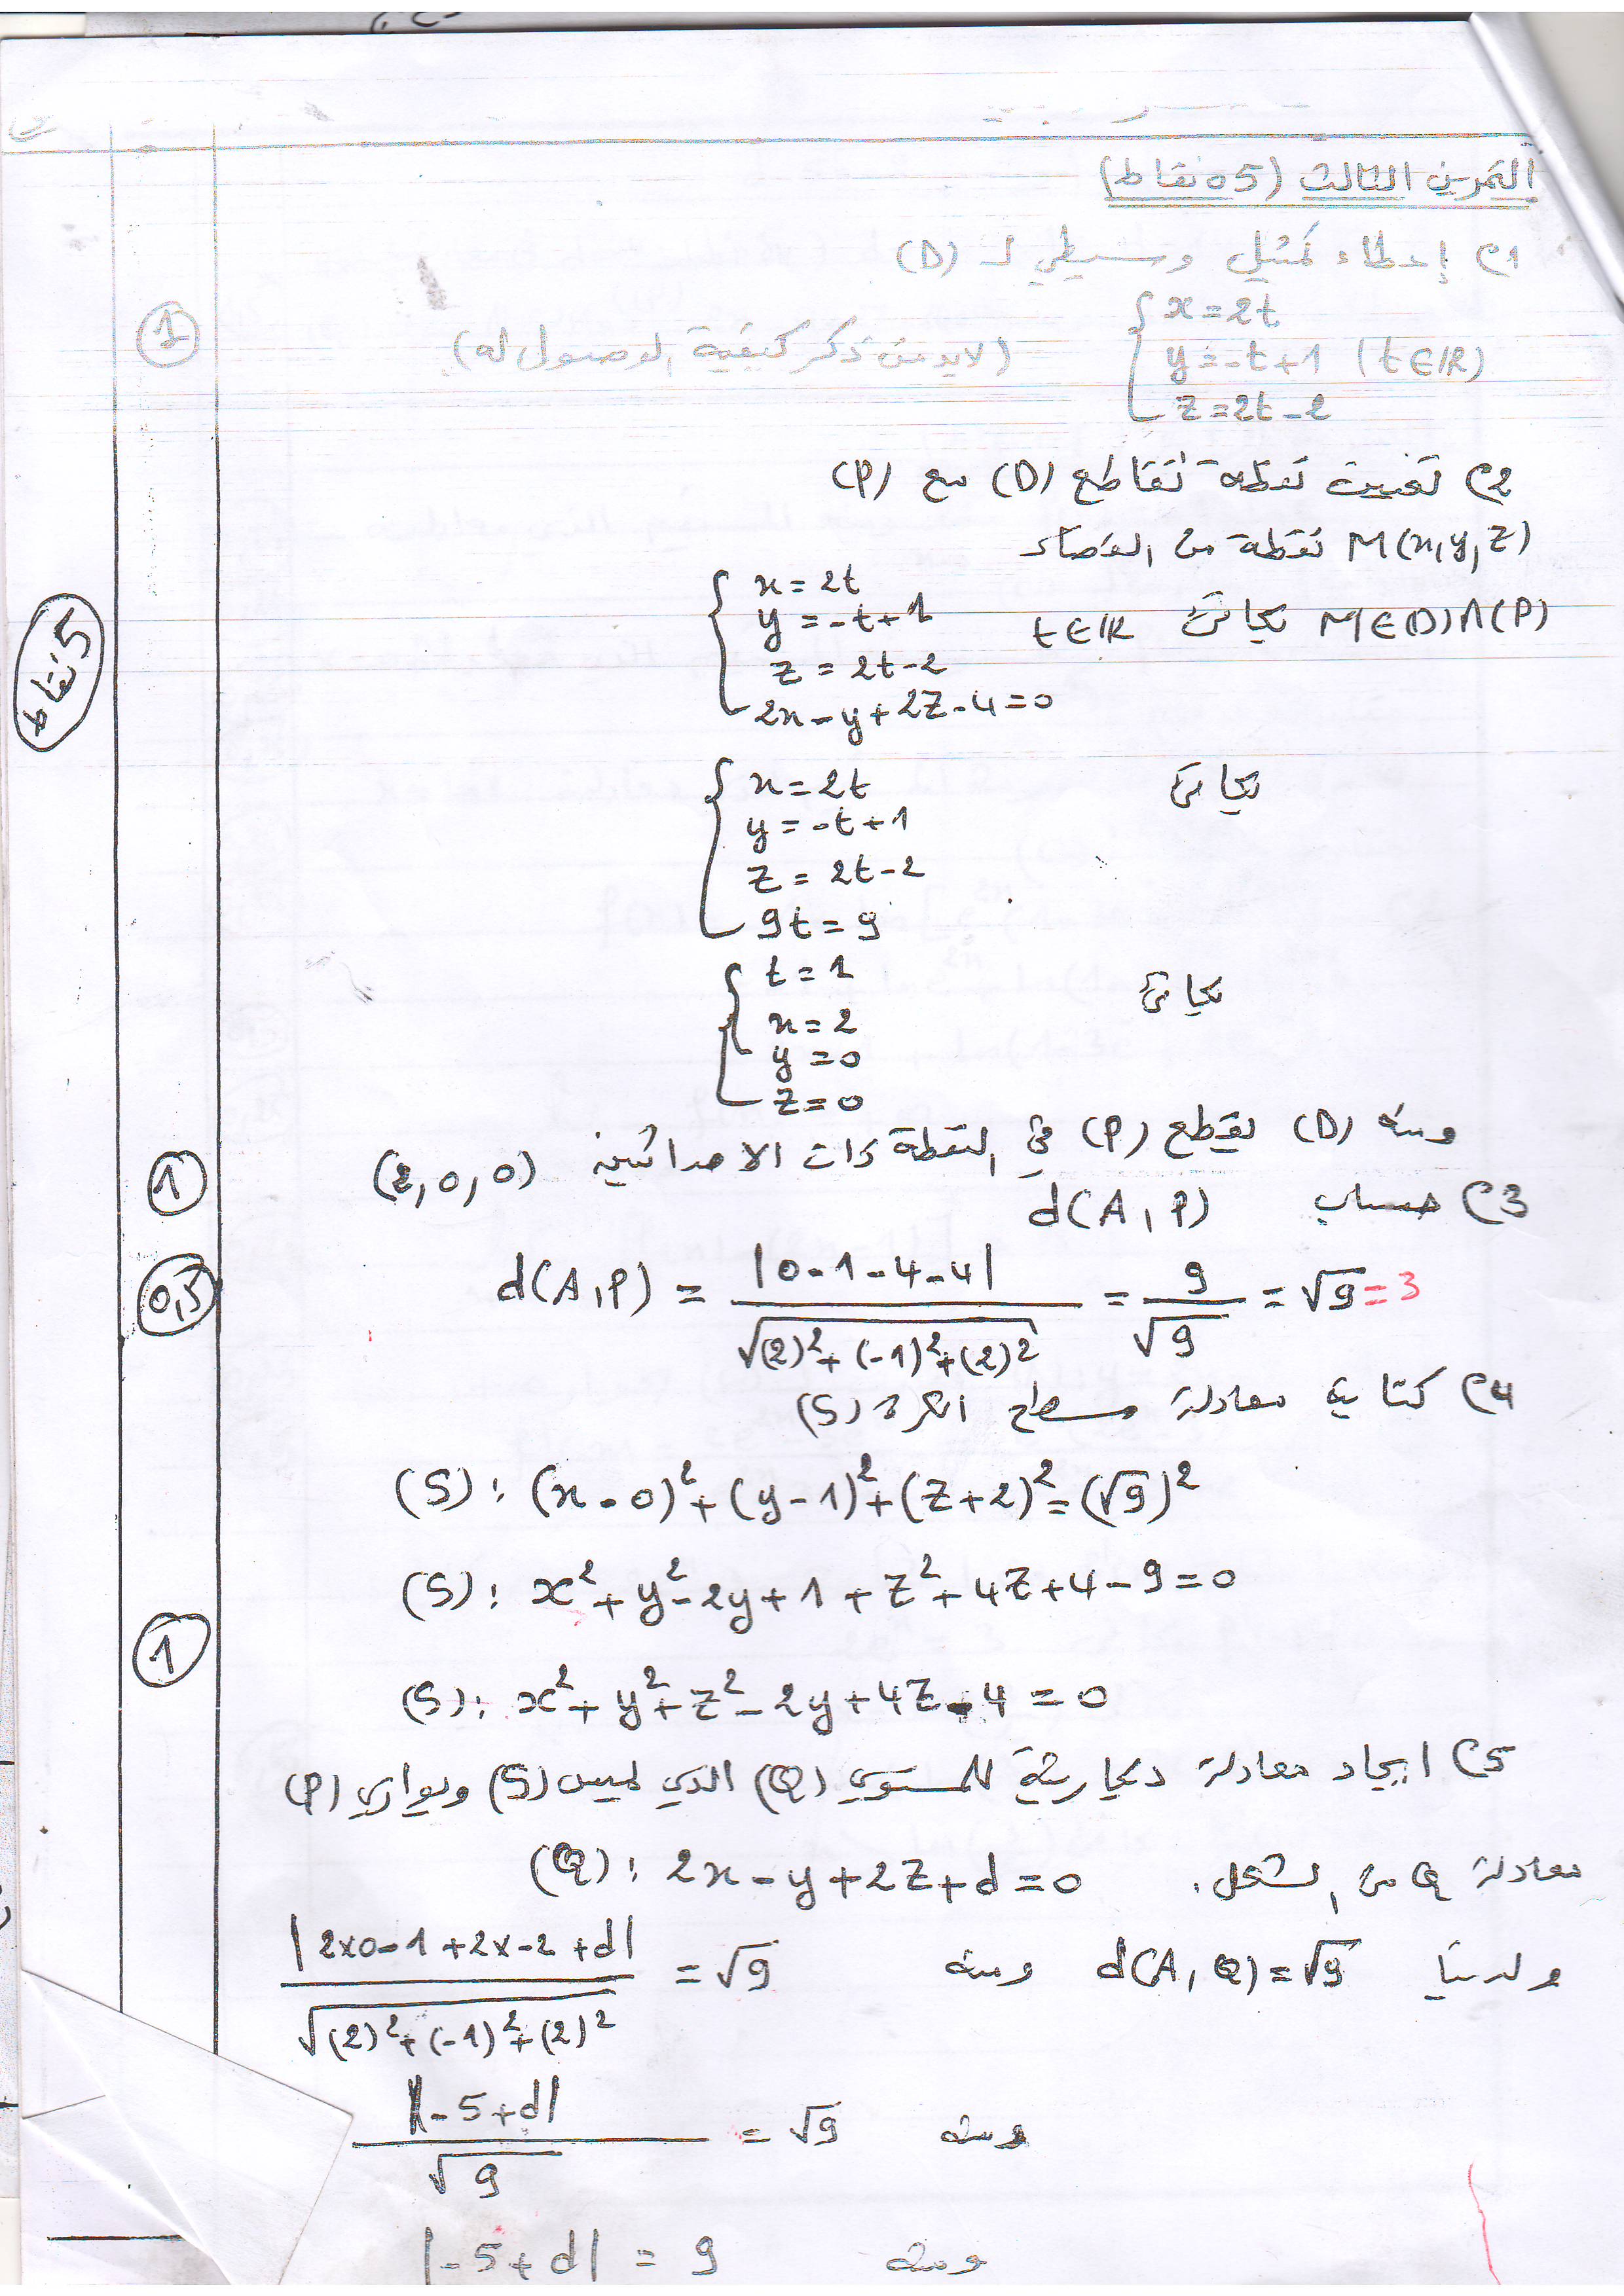 التمرين الثالث (05 نقاط)
ج1 إعطاء تمثيل وسيطي لـ (D)
{ x = 2t
y = -t+1 (t∈IR) (لابد من ذكر كيفية الوصول له) ①
z = 2t-2
ج2 تعيين نقطة تقاطع (D) مع (P)
M(x,y,z) نقطة من الفضاء
M∈(D)∩(P) تكافئ t∈IR
{ x = 2t
y = -t+1
z = 2t-2
2x-y+2z-4=0
5 نقاط
تكافئ
{ x = 2t
y = -t+1
z = 2t-2
9t = 9
تكافئ
{ t = 1
x = 2
y = 0
z = 0
ومنه (D) يقطع (P) في النقطة ذات الاحداثيـ (2,0,0) ①
ج3 حساب d(A,P)
d(A,P) = |0-1-4-4| / √(2)²+(-1)²+(2)² = 9/√9 = √9 = 3 0,5
ج4 كتابة معادلة سطح الكرة (S)
(S): (x-0)²+(y-1)²+(z+2)²=(√9)²
(S): x²+y²-2y+1+z²+4z+4-9=0
①
(S): x²+y²+z²-2y+4z-4=0
ج5 ايجاد معادلة ديكارتية للمستوي (Q) الذي يمس (S) ويوازي (P)
معادلة Q من الشكل: (Q): 2x-y+2z+d=0
ولدينا d(A,Q)=√9 ومنه |2x0-1+2x-2+d| / √(2)²+(-1)²+(2)² = √9
ومنه |-5+d| / √9 = √9
ومنه |-5+d| = 9